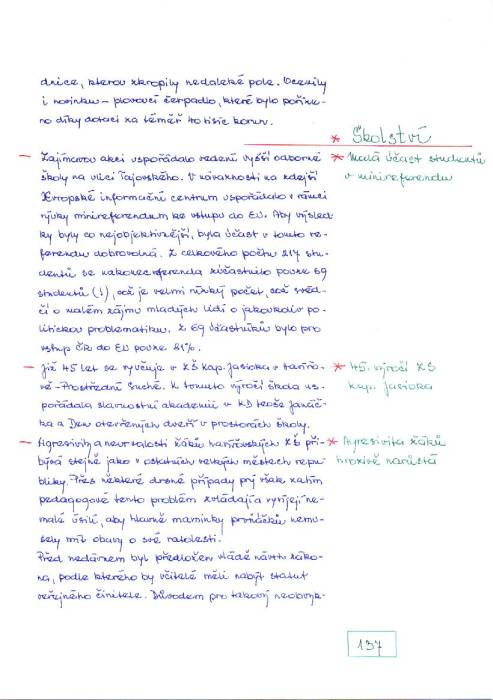 dnice, kterou zkropily nedaleké pole. Ocenily
i novinku – plovoucí čerpadlo, které bylo poříze-
no díky dotaci za téměř 40 tisíc korun.
* Školství
– Zajímavou akci uspořádalo vedení vyšší odborné
školy na ulici Tajovského. V návaznosti na zdejší
Evropské informační centrum uspořádalo v rámci
výuky minireferendum ke vstupu do EU. Aby výsled-
ky byly co nejobjektivnější, byla účast v tomto re-
ferendu dobrovolná. Z celkového počtu 217 stu-
dentů se nakonec referenda zúčastnilo pouze 69
studentů (!), což je velmi nízký počet, což svěd-
čí o malém zájmu mladých lidí o jakoukoliv po-
litickou problematiku. Z 69 účastníků bylo pro
vstup ČR do EU pouze 81%.
* Malá účast studentů
v minireferendu
– Již 45 let se vyučuje v ZŠ kap. Jasioka v Havířo-
vě – Prostřední Suché. K tomuto výročí škola us-
pořádala slavnostní akademii v KD Leoše Janáč-
ka a Den otevřených dveří v prostorách školy.
* 45. výročí ZŠ
kap. Jasioka
– Agresivity a neurvalosti žáků havířovských ZŠ při-
bývá stejně jako v ostatních velkých městech repu
bliky. Přes některé drsné případy prý však zatím
pedagogové tento problém zvládají a vyvíjejí ne-
malé úsilí, aby hlavně maminky prvňáčků nemu-
sely mít obavy o své ratolesti.
Před nedávnem byl předložen vládě návrh záko-
na, podle kterého by učitelé měli nabýt statut
veřejného činitele. Důvodem pro takový neobvyk-
* Agresivita žáků
hrozivě narůstá
137